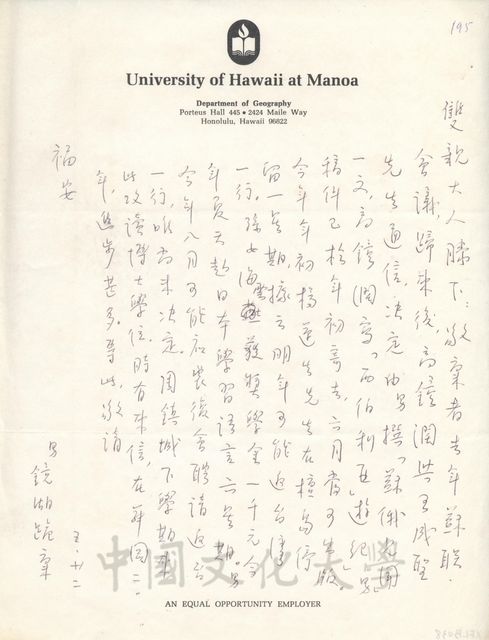 195
University of Hawaii at Manoa
Department of Geography
Porteus Hall 445 • 2424 Maile Way
Honolulu, Hawaii 96822
雙親大人膝下：敬稟者去年蘇聯
會議，歸來後，高鏡潤與王成聖
先生通信，決定由男撰「蘇俄見聞
一文，高鏡潤寫「西伯利亞」遊記，男
稿件已於年初寄去，六月當可出版。
今年年初楊先生在檀島停
留一星期，據云明年可能返台講
一行。孫女海燕獲獎學金一千元，今
年夏天赴日本學習語言六星期。男
今年八月可能應會聘請返台
一行，唯尚未決定。周鎮城下學期來
此攻讀博士學位，時有來信，在華岡二
年，進步甚多。專此，敬請
福安
男
鏡湖跪稟
五、廿二
中國文化大學
AN EQUAL OPPORTUNITY EMPLOYER